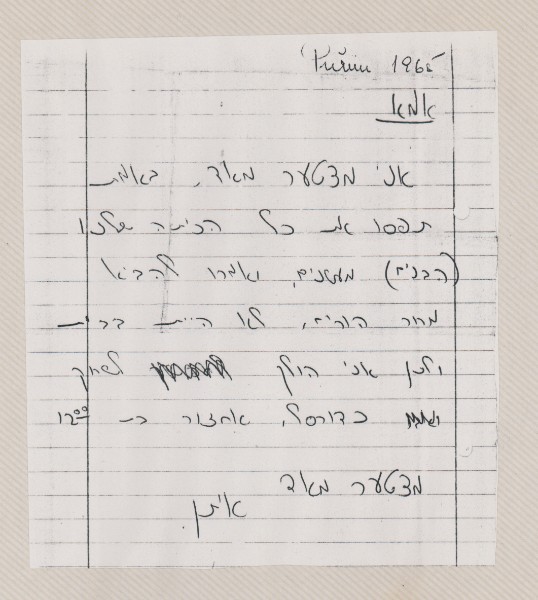 1965
אמא
אני מצטער מאד. באמת
תפסו את כל הכיתה שלנו
(הבנים) מעשנים, ואמרו להביא
מחר הורים. לא היית בבית
ולכן אני הולך לשחק
כדורסל, אחזור ב- 12⁰⁰
מצטער מאד
איתן